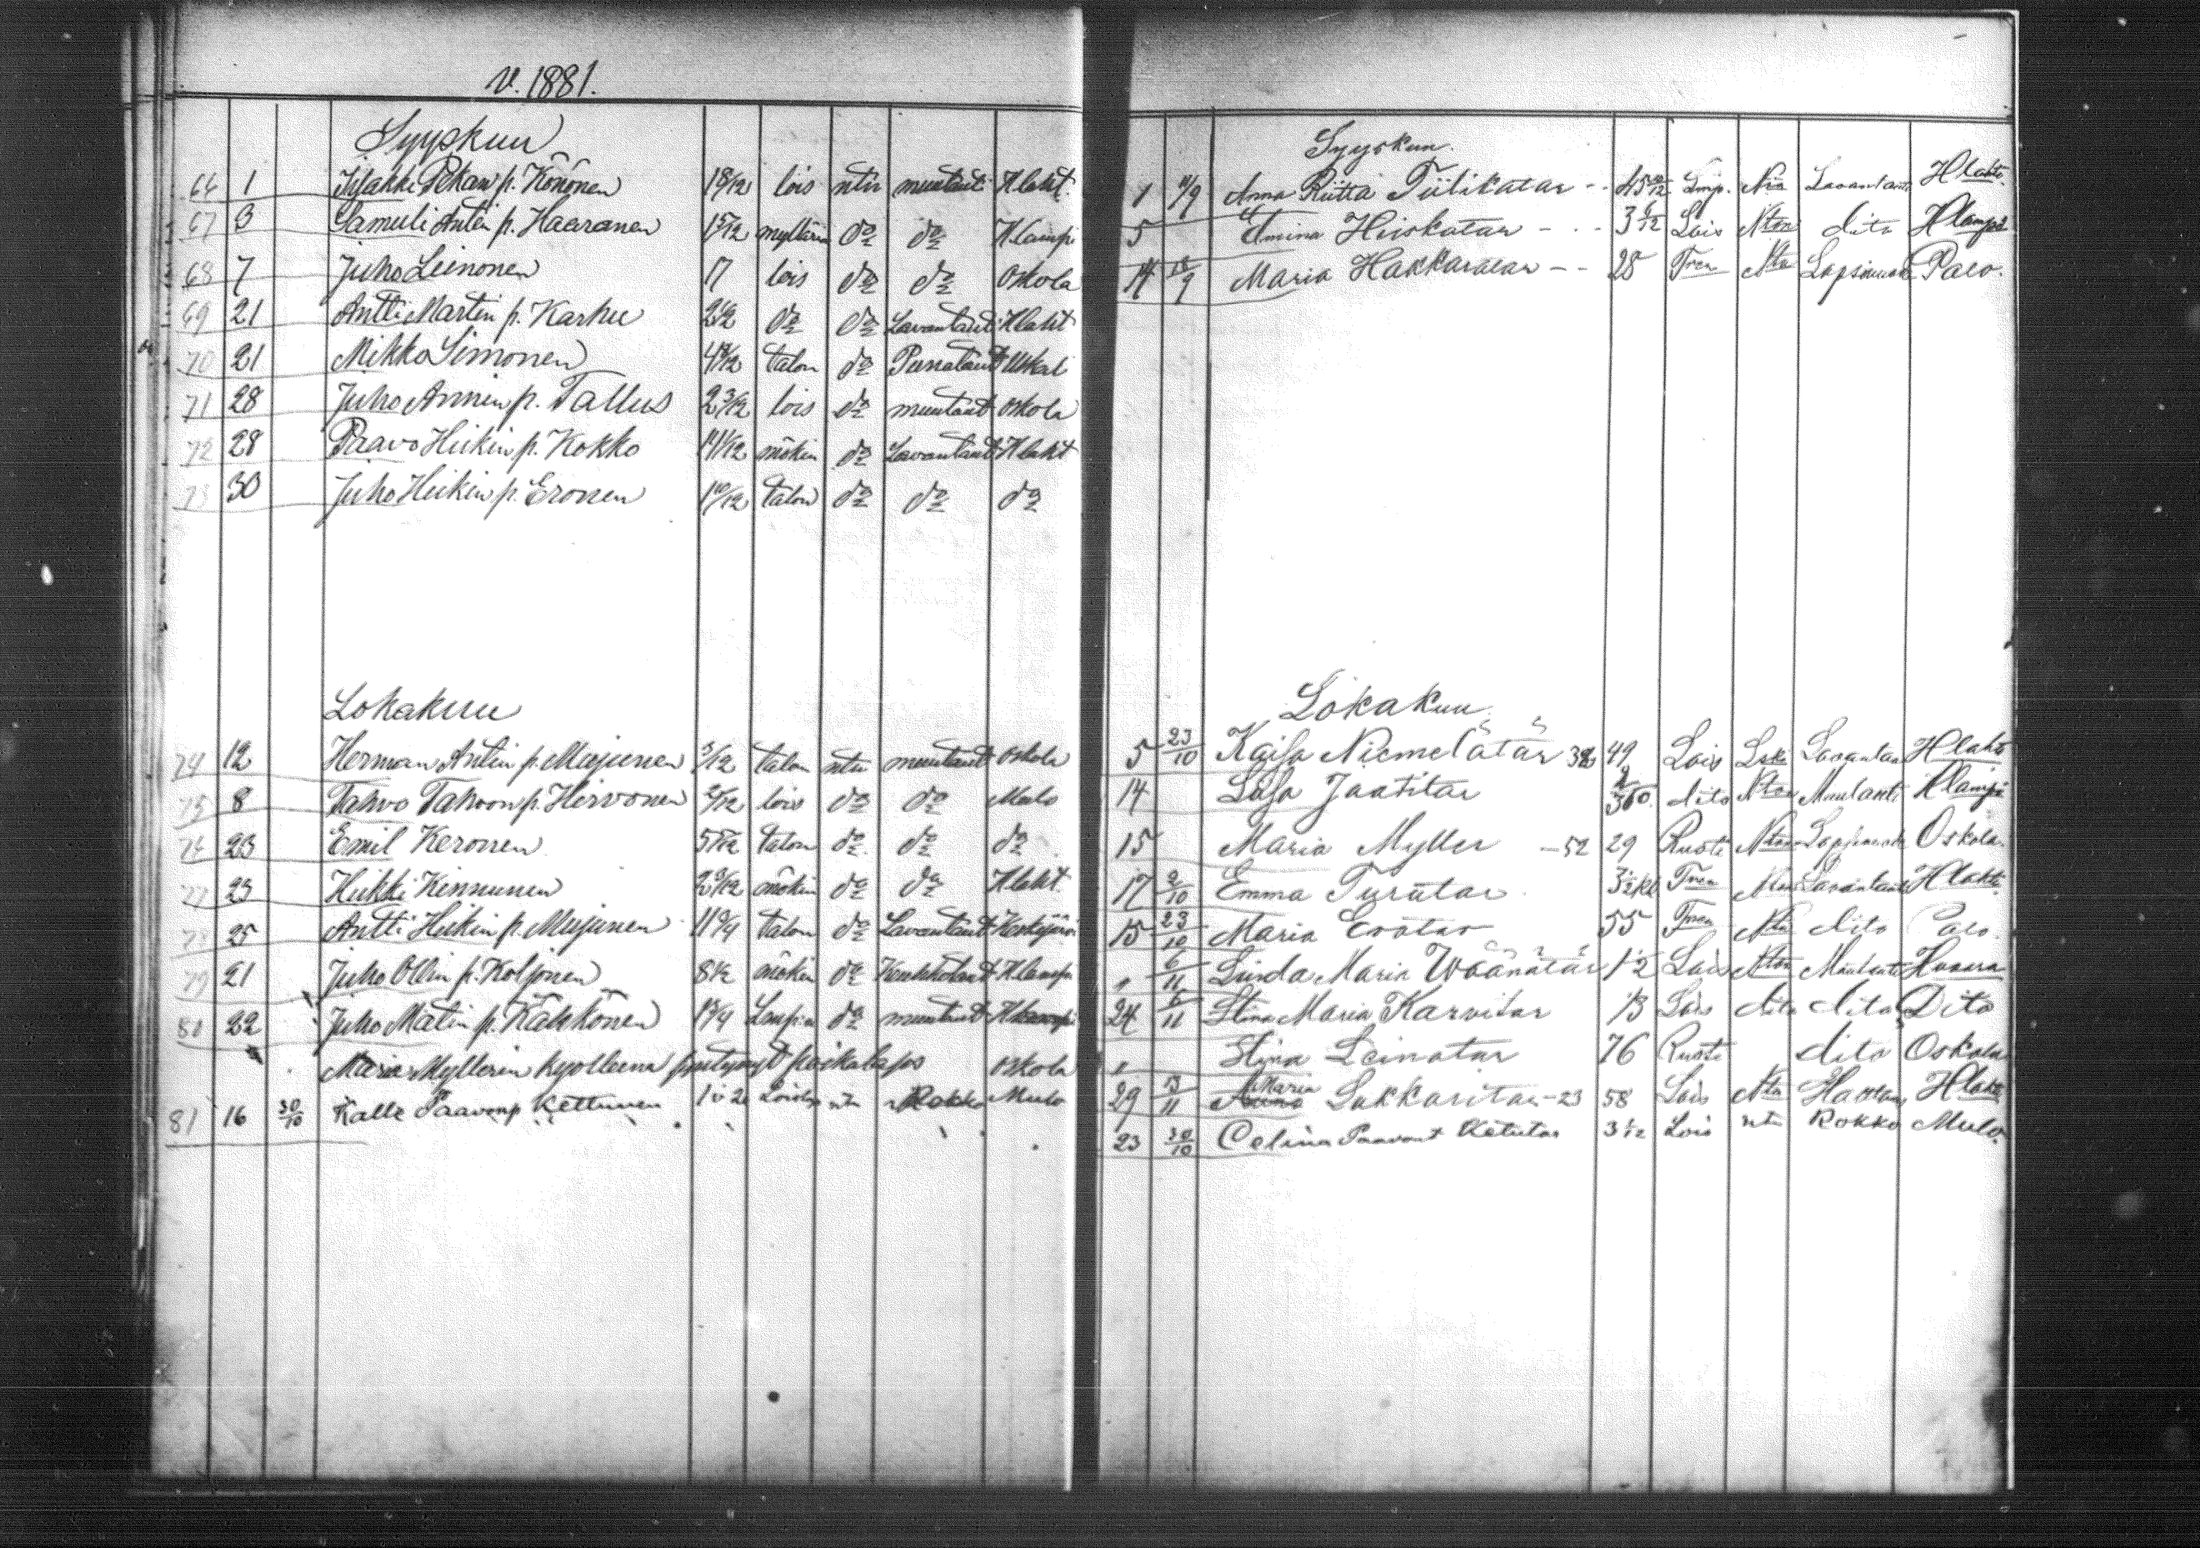 v. 1881.
Syyskuu
66 1 Pekan p. Könönen 1 8/12 lois ntu muutaut Hlaht.
67 3 Samuli Antin p. Haaranen 1 5/12 myllärin do do Hlamp
68 7 Juho Leinonen 17 lois do do Oskola
69 21 Antti Martin p. Karhu do do Lavantaut Hlaht
70 21 Mikko Simonen talon do Punataut Uskal
71 28 Juho Annin p. Tallus 2 3/12 lois do muutaut Oskola
72 28 Paavo Heikin p. Kokko mökin do Lavantaut Hlaht
73 30 Juho Heikin p. Eronen 1 10/12 talon do do do
Lokakuu
74 12 Herman Antin p. Mujunen talon ntu muutaut Oskola
75 8 Tahvo Tahvon p. Hirvonen lois do do Mulo
76 23 Emil Keronen talon do do do
77 23 Heikki Kinnunen mökin do do Hlaht.
78 25 Antti Heikin p. Mujunen talon do Lavantaut
79 21 Juho Ollin p. Koljonen 8 1/2 mökin do Hlamp
80 22 Juho Matin p. Käkkönen do muutaut
Maria Myllerin kuolleena syntynyt poikalaps Oskola
81 16 30/10 Kalle Paavonp Kettunen ntu Rokko Mulo
Syyskuu.
1 11/9 Anna Riitta Tiilikatar - - 45 Lmp. Lavantauti Hlaht.
5 Emina Hiiskatar - - - 3 Lois Nton dito Hlampi
14 18/9 Maria Hakkaratar - - 28 Tren Nta Palo.
Lokakuu.
5 23/10 Kaisa Niemelätär 49 Lois Lska Lavantau Hlaht
14 Liisa Jaatitar dito Nton Muutauti Hlampi
15 Maria Myller - 52 29 Ruoti Nton Oskola.
17 9/10 Emma Turutar Tren Lavantauti Hlaht
15 23/10 Maria Erotar 55 Tren Nta dito Palo.
" 6/11 Linda Maria Wäänätär 1 1/2 Lois Nton Muutauti Huuara
24 6/11 Stina Maria Karvitar 1/3 Lois dito dito Dito
" Stina Leinotar 76 Ruoti dito Oskola
29 13/11 Maria Lukkaritar - 23 58 Lois Nta Hlaht
23 30/10 Celina Paavont Ketutar Lois ntu Rokko Mulo